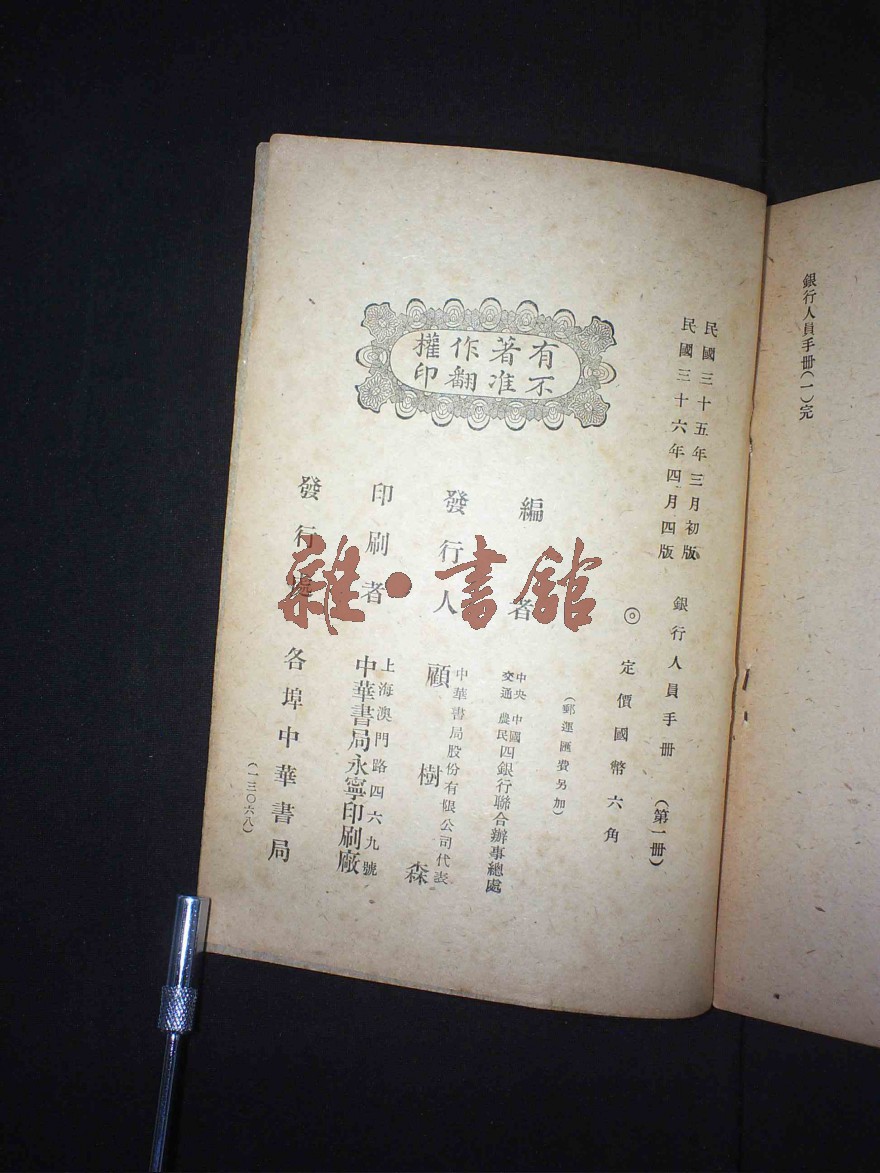 銀行人員手冊(一)完
民國三十五年三月初版
民國三十六年四月四版
銀行人員手冊 (第一冊)
◎ 定價國幣六角
(郵運匯費另加)
編者
中央 中國
交通 農民
四銀行聯合辦事總處
發行人
中華書局股份有限公司代表
顧樹森
印刷者
上海澳門路四六九號
中華書局永寧印刷廠
發行處
各埠中華書局
(一三〇六八)
有著作權
不准翻印
雜·書館